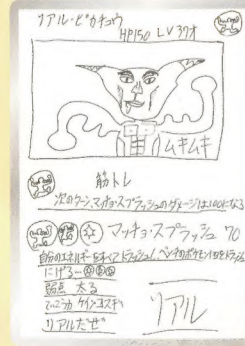 リアル・ピカチュウ
HP150 LV37才
ムキムキ
筋トレ
次のターン、マッチョ・スプラッシュのダメージは100になる
マッチョ・スプラッシュ 70
自分のエネルギーをすべてトラッシュし、ベンチのポケモン
にげる
弱点 太る
ケイン・コスギ
リアル
リアルだぜ